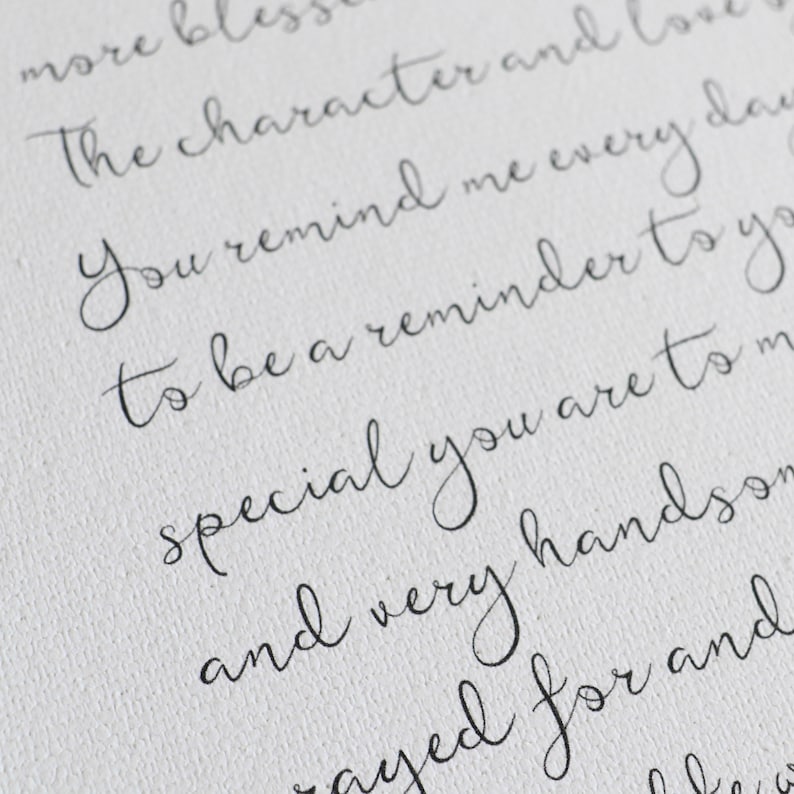 more blesse
The character and love
You remind me every day
to be a reminder to yo
special you are to m
and very handsom
rayed for and